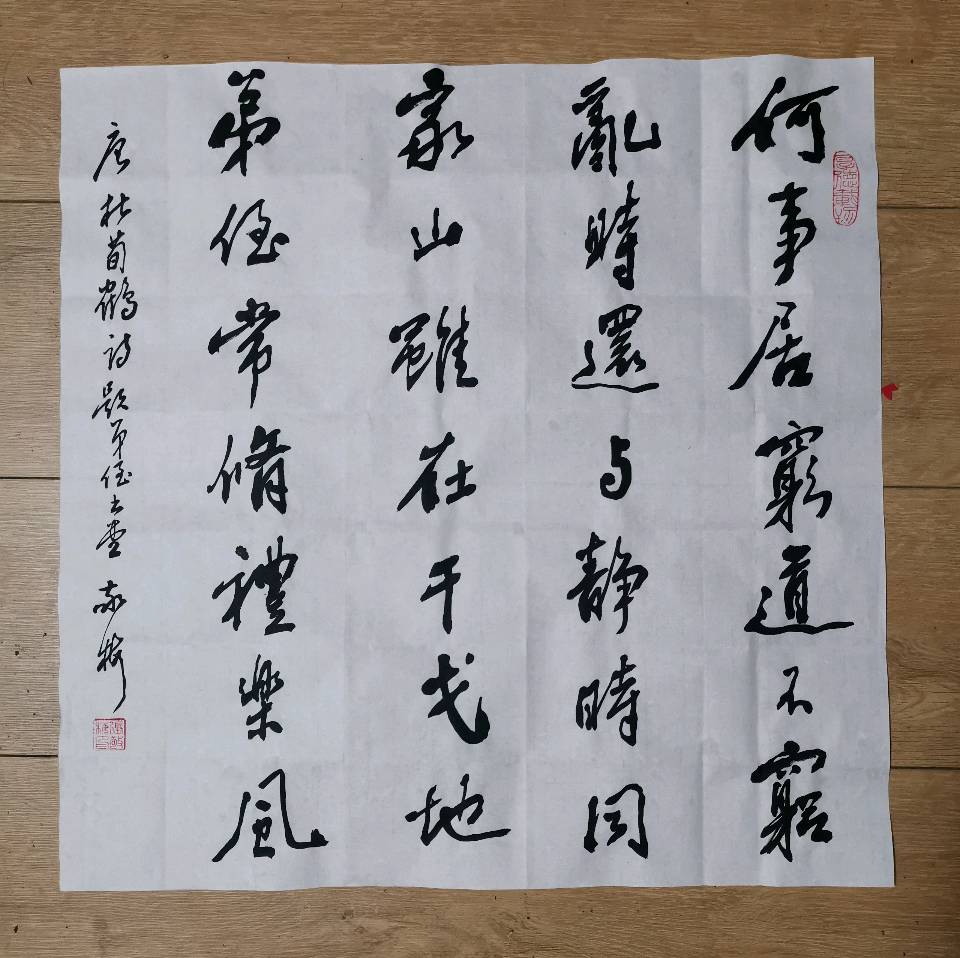 何事居窮道不窮
亂時還与静時同
家山雖在干戈地
弟侄常脩禮樂風
唐杜荀鶴詩題弟侄書堂
厚德載物